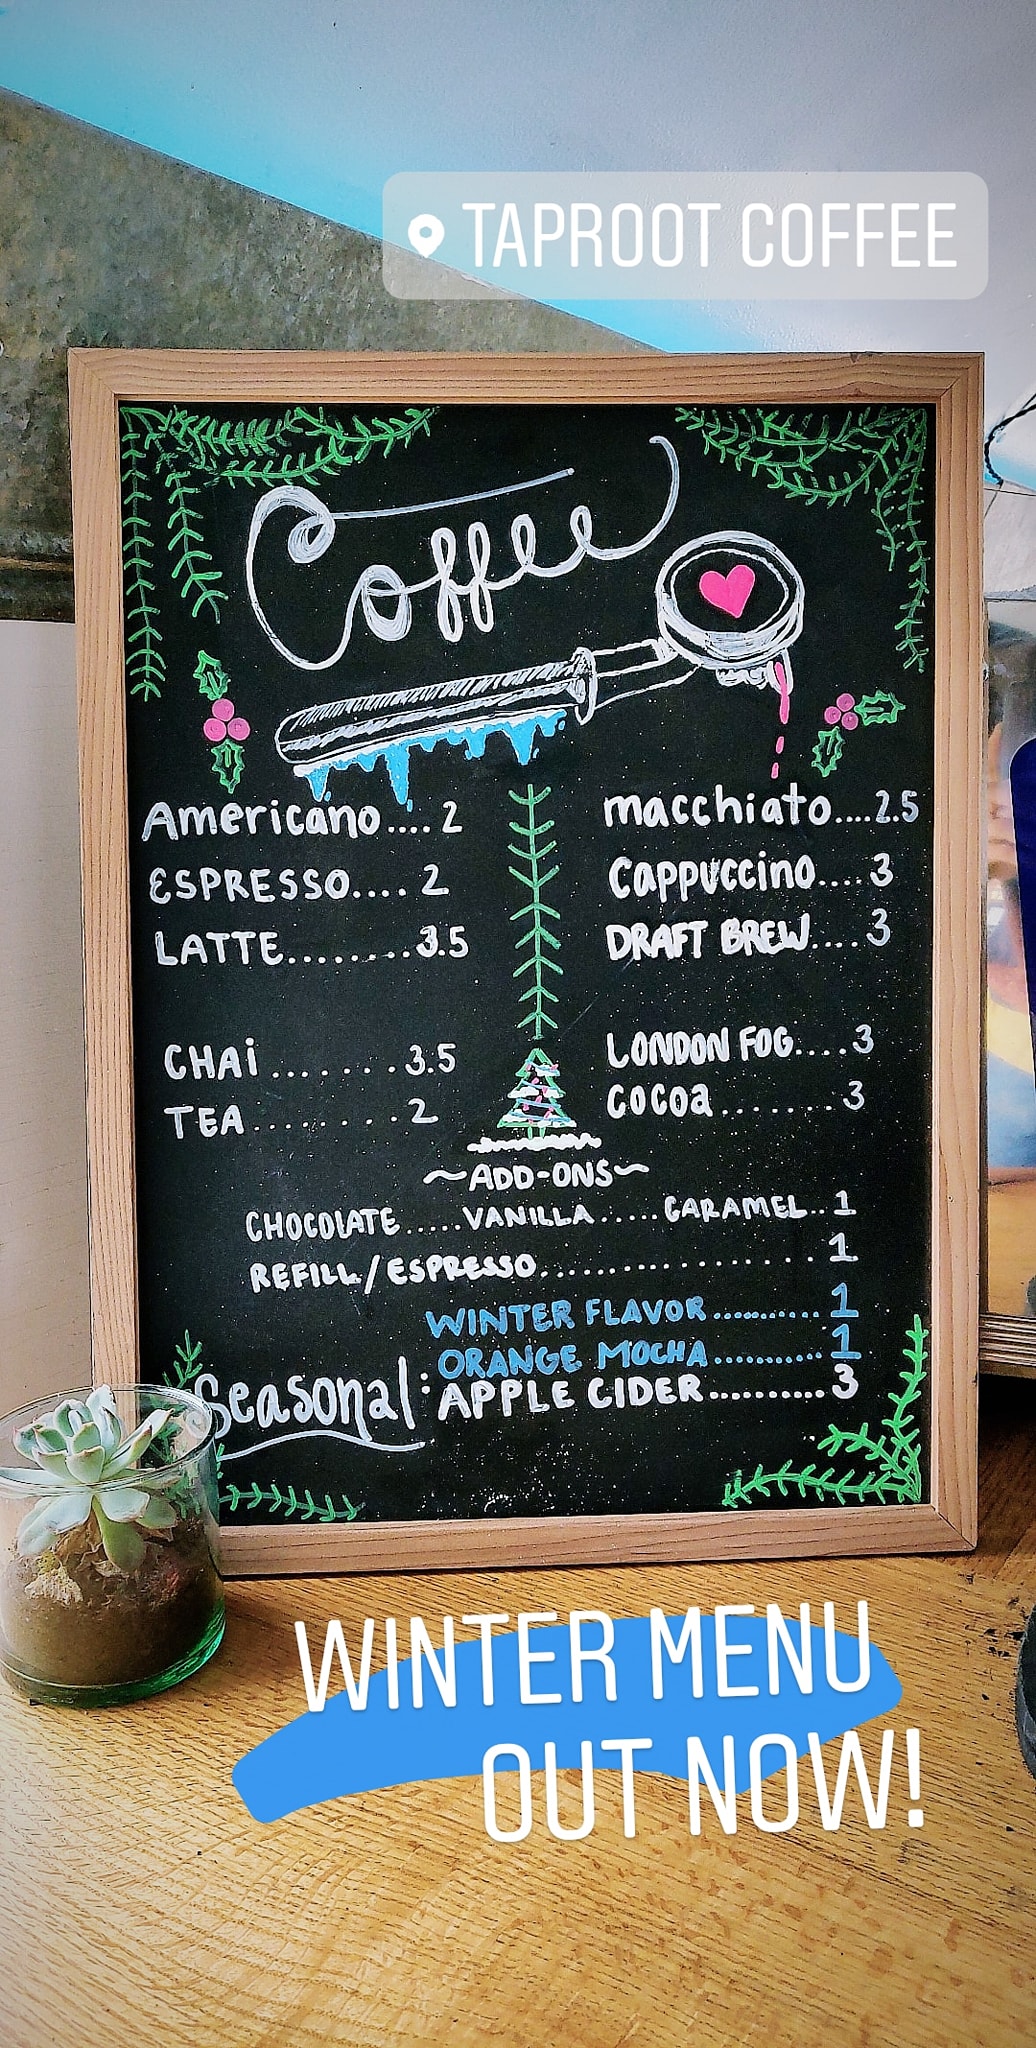 TAPROOT COFFEE
Coffee
Americano....2
ESPRESSO....2
LATTE........3.5
macchiato....2.5
Cappuccino....3
DRAFT BREW....3
CHAi.......3.5
TEA........2
LONDON FOG....3
COCOa.......3
~ADD-ONS~
CHOCOLATE.....VANILLA.....CARAMEL..1
REFILL/ESPRESSO..............1
WINTER FLAVOR..........1
ORANGE MOCHA..........1
Seasonal: APPLE CIDER..........3
WINTER MENU
OUT NOW!